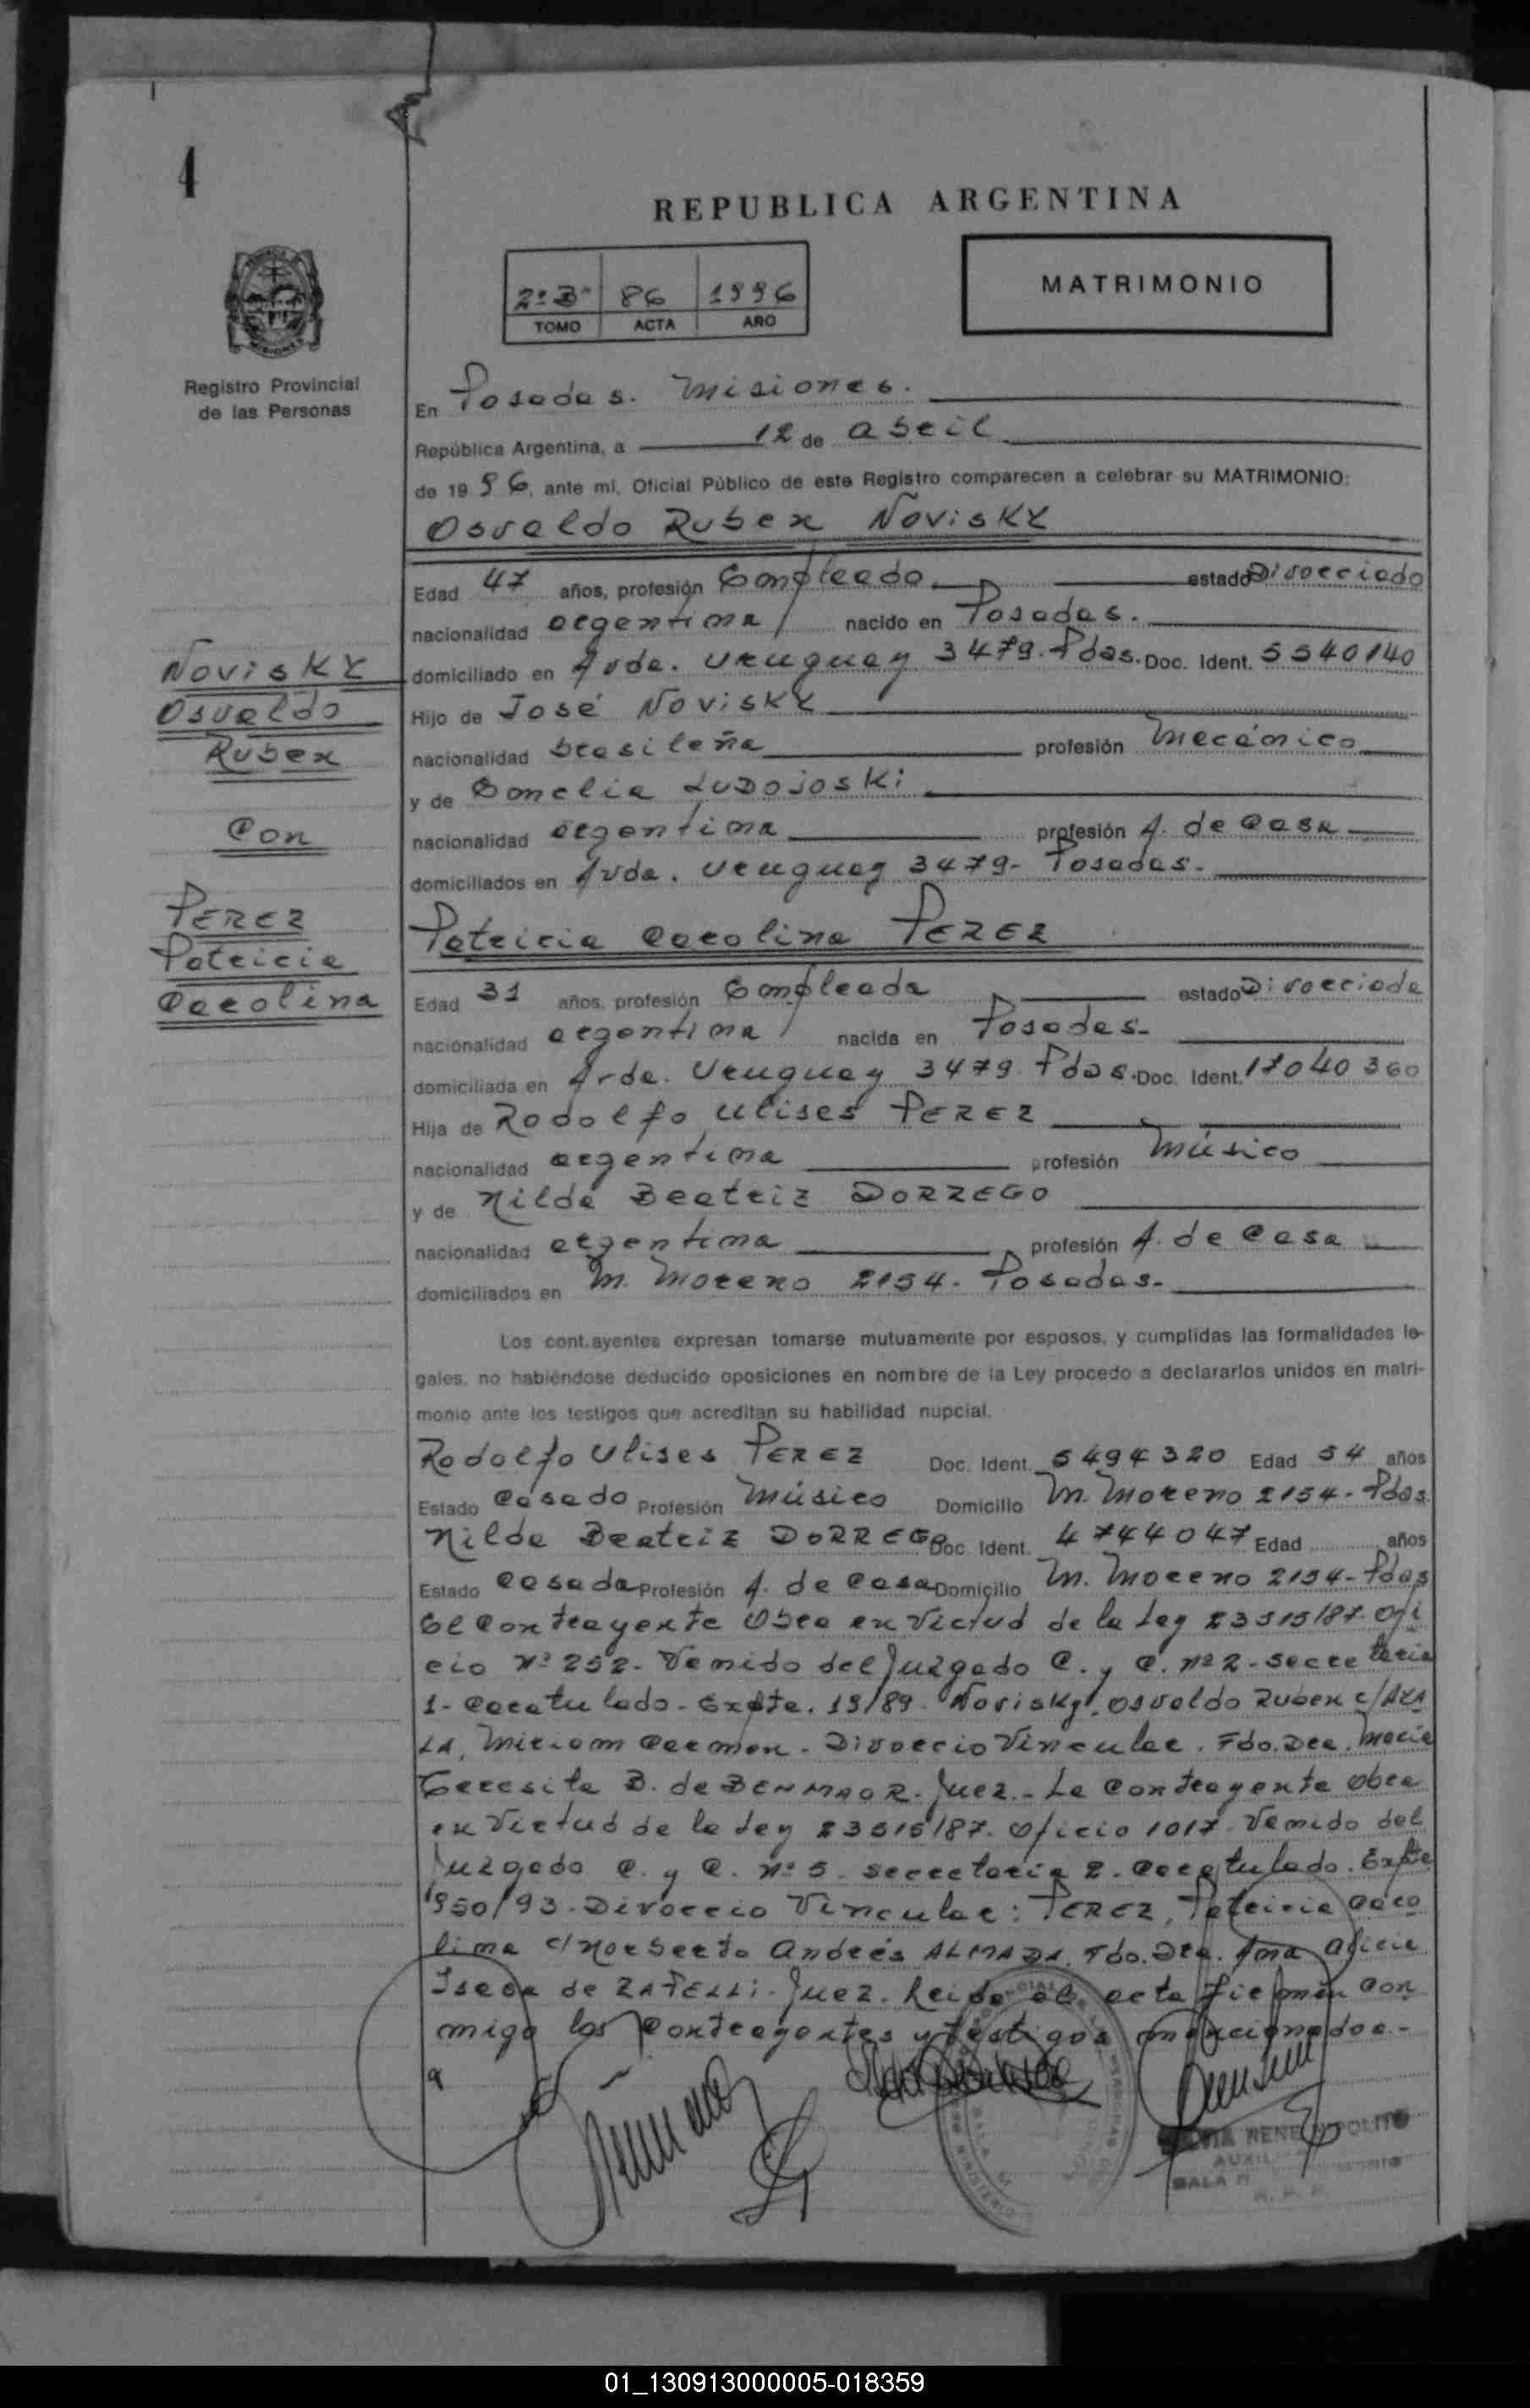 4
REPUBLICA ARGENTINA
2º B" 86 1996
TOMO ACTA AÑO
MATRIMONIO
MISIONES
Registro Provincial
de las Personas
En Posadas. Misiones.
República Argentina, a 12 de abril
de 1996, ante mí, Oficial Público de este Registro comparecen a celebrar su MATRIMONIO:
Osvaldo Ruben NoviskY
Edad 47 años, profesión Empleado estado Divorciado
nacionalidad argentina nacido en Posadas.
NoviskY
domiciliado en Avda. Uruguay 3479. Pdas. Doc. Ident. 5540140
Osvaldo
Hijo de José NoviskY
Ruben
nacionalidad brasileña profesión Mecánico
y de Emelia LUDOjoski
Con
nacionalidad argentina profesión A. de Casa
domiciliados en Avda. Uruguay 3479- Posadas.
PEREZ
Patricia Carolina PEREZ
Patricia
Carolina
Edad 31 años, profesión Empleada estado Divorciada
nacionalidad argentina nacida en Posadas-
domiciliada en Avda. Uruguay 3479 Pdas. Doc. Ident. 17040360
Hija de Rodolfo Ulises PEREZ
nacionalidad argentina profesión Músico
y de Nilda Beatriz DORREGO
nacionalidad argentina profesión A. de Casa
domiciliados en M. Moreno 2154- Posadas-
Los contrayentes expresan tomarse mutuamente por esposos, y cumplidas las formalidades le-
gales, no habiéndose deducido oposiciones en nombre de la Ley procedo a declararlos unidos en matri-
monio ante los testigos que acreditan su habilidad nupcial.
Rodolfo Ulises PEREZ Doc. Ident. 5494320 Edad 54 años
Estado Casado Profesión Músico Domicilio M. Moreno 2154- Pdas.
Nilda Beatriz DORREGO Doc. Ident. 4744047 Edad años
Estado Casada Profesión A. de Casa Domicilio M. Moreno 2154- Pdas
El Contrayente Obra en Virtud de la Ley 23515/87. Ofi
cio Nº 252- Venido del Juzgado C. y C. Nº 2- Secretaria
1- Caratulado- Expte. 13/89. "Novisky, Osvaldo Ruben c/AYA
LA, Miriam Carmen- Divorcio Vincular. Fdo. Dra. Maria
Teresita B. de BENMAOR. Juez.- La Contrayente Obra
en Virtud de la Ley 23515/87. Oficio 1017- Venido del
Juzgado C. y C. Nº 5- Secretaria 2- Caratulado. Expte
1950/93. Divorcio Vincular: PEREZ, Patricia Caro
lina c/ Norberto Andrés ALMADA. Fdo. Dra. Ana Alicia
de ZAPELLI. Juez. Leida el acta firman con
migo los Contrayentes y testigos mencionados.-
RENE
AUXIL
SALA
01_130913000005-018359